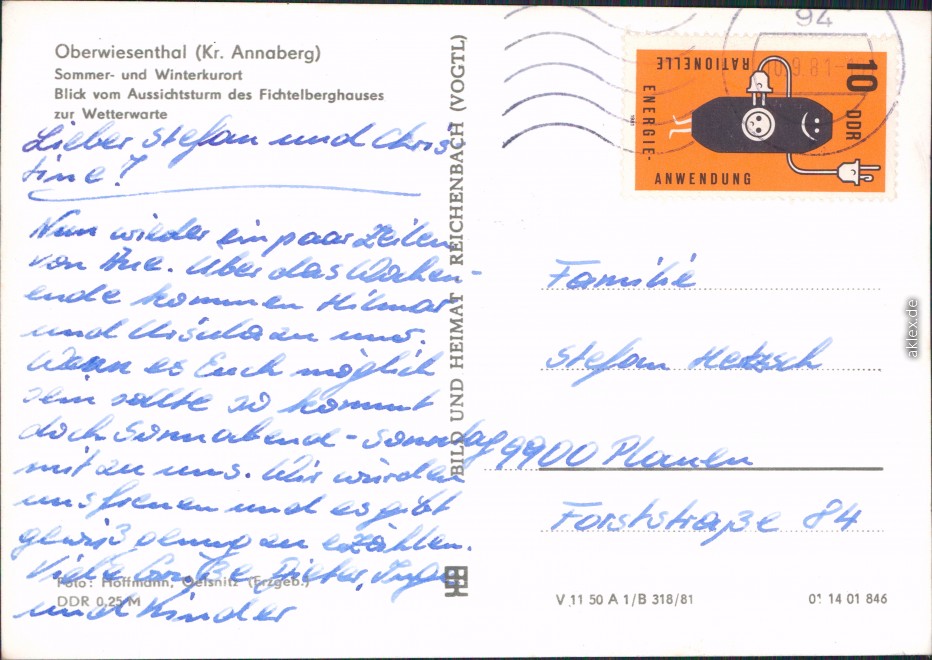 Oberwiesenthal (Kr. Annaberg)
Sommer- und Winterkurort
Blick vom Aussichtsturm des Fichtelberghauses
zur Wetterwarte
Lieber Stefan und Chris
tine!
Nun wieder ein paar Zeilen
von Aue. Über das Wochen-
ende kommen Hilmar
und Ursula zu uns.
Wenn es Euch möglich
sein sollte so kommt
doch Sonnabend - Sonntag
mit zu uns. Wir würden
uns freuen und es gibt
gewiß genug zu erzählen.
Viele Grüße Dieter, Inge
und Kinder
Foto: Hoffmann, Oelsnitz (Erzgeb.)
DDR 0,25 M
BILD UND HEIMAT REICHENBACH (VOGTL)
94
9.81
RATIONELLE
ENERGIE-
ANWENDUNG
10 DDR
Familie
Stefan Hetzsch
9900 Plauen
Forststraße 84
V 11 50 A 1/B 318/81
01 14 01 846
aklex.de